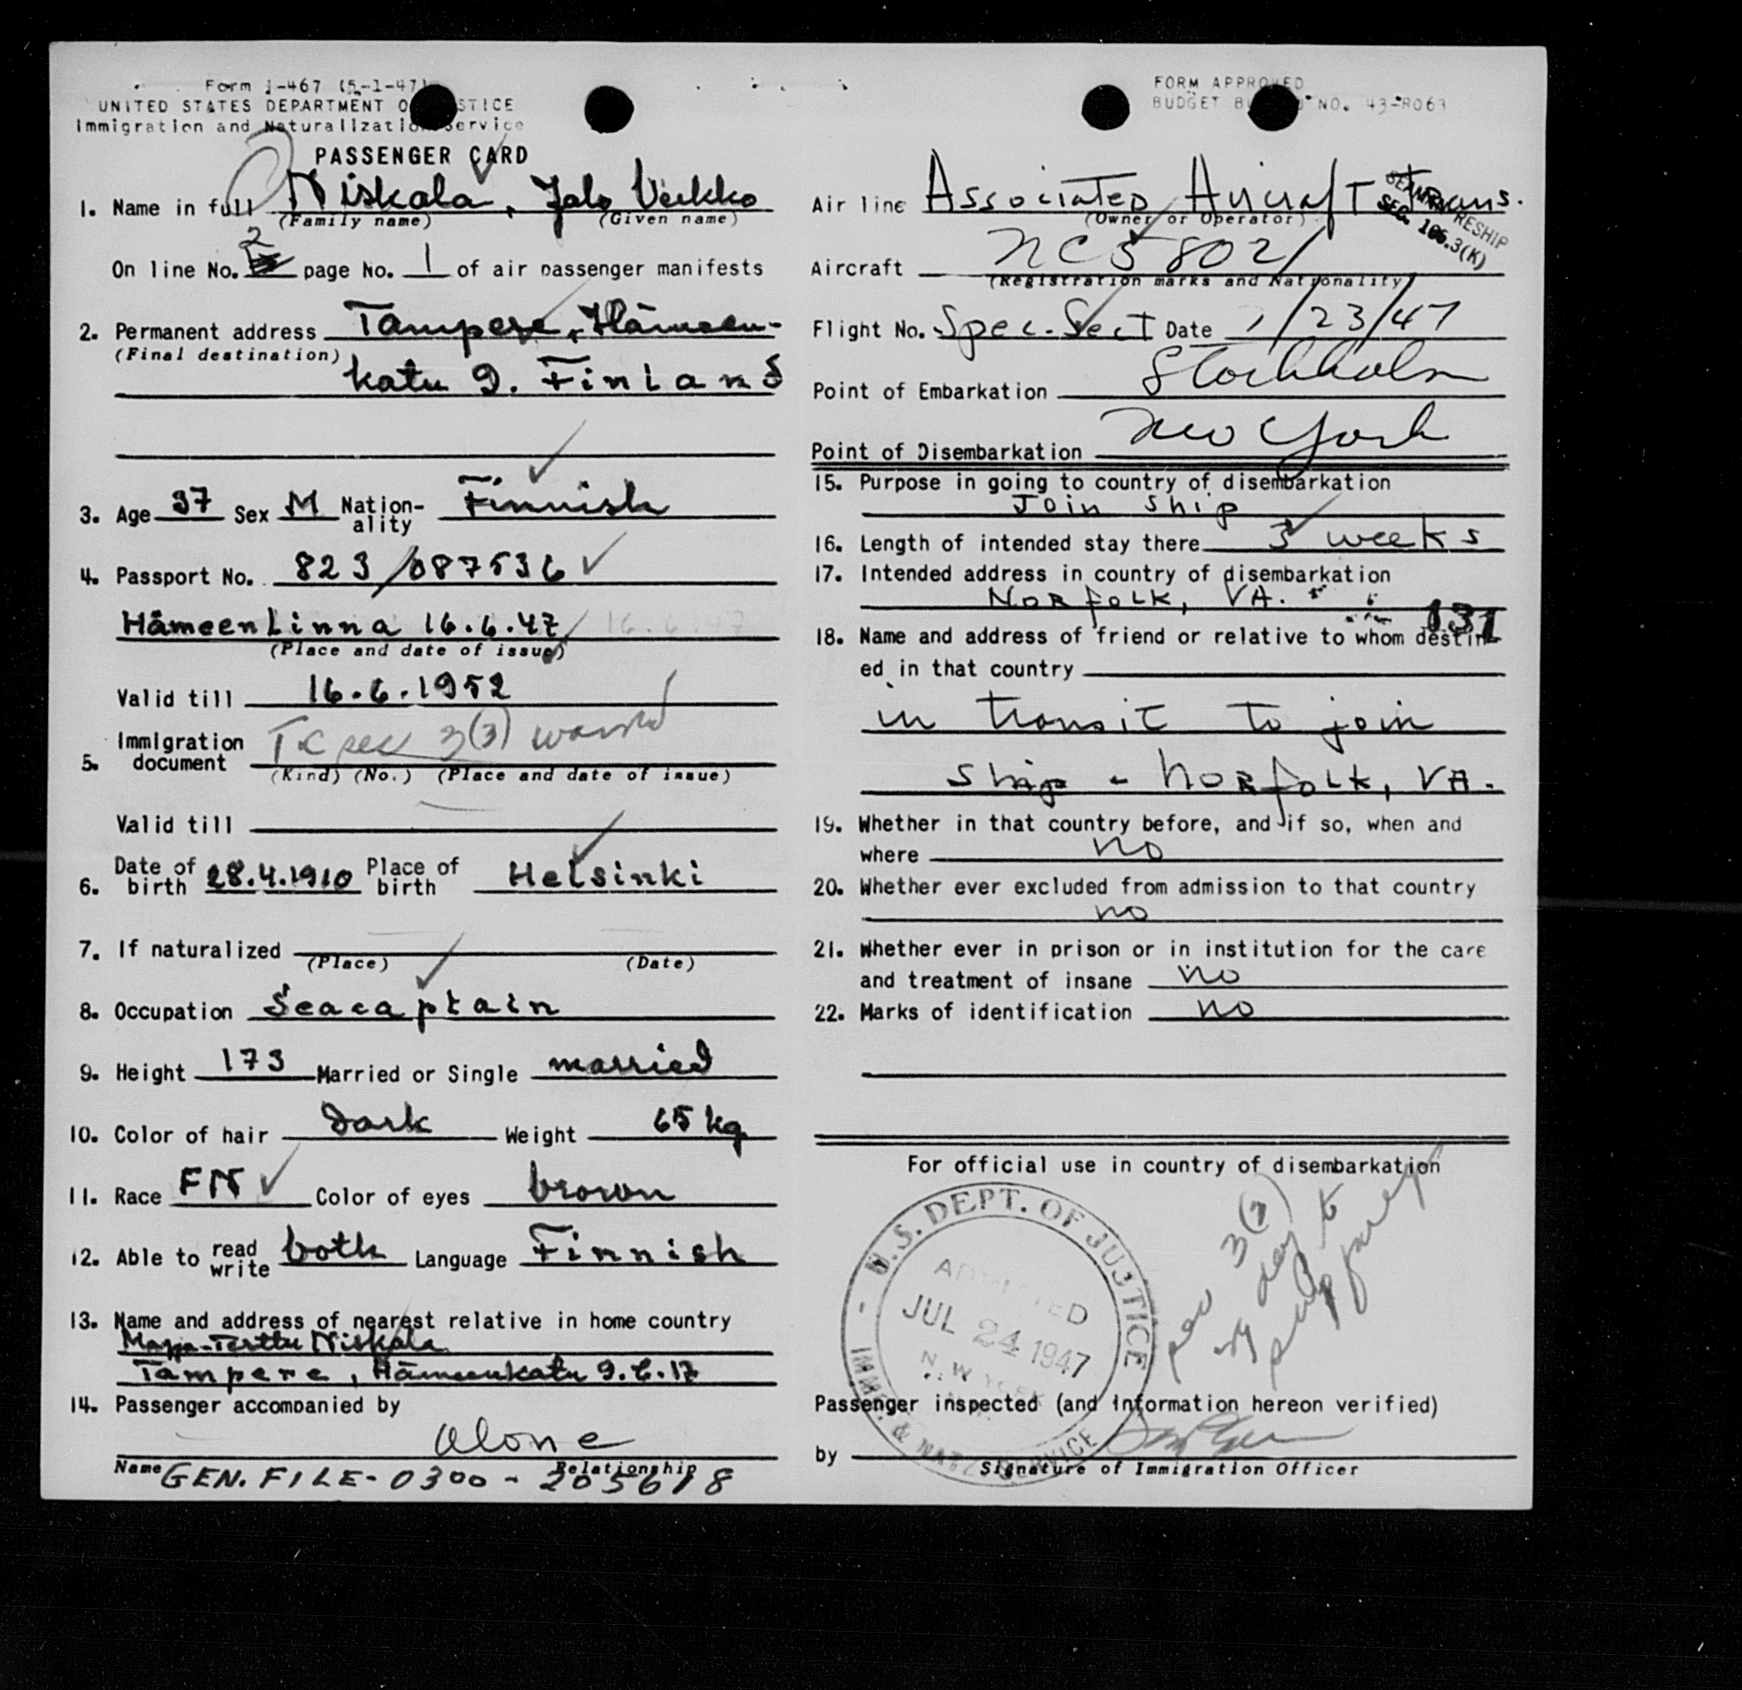 Form I-467 (5-1-47)
UNITED STATES DEPARTMENT OF JUSTICE
Immigration and Naturalization Service
PASSENGER CARD
1. Name in full Niskala, Jalo Veikko
(Family name) (Given name)
On line No. 2 page No. 1 of air passenger manifests
2. Permanent address Tampere, Hämeen-
(Final destination)
katu 9. Finland
3. Age 37 Sex M Nation-ality Finnish
4. Passport No. 823/087536
Hämeenlinna 16.6.47 16.6.47
(Place and date of issue)
Valid till 16.6.1952
5. Immigration document 3(3)
(Kind) (No.) (Place and date of issue)
Valid till
6. Date of birth 28.4.1910 Place of birth Helsinki
7. If naturalized
(Place) (Date)
8. Occupation Seacaptain
9. Height 173 Married or Single married
10. Color of hair dark Weight 65 kg
11. Race FN Color of eyes brown
12. Able to read write both Language Finnish
13. Name and address of nearest relative in home country
Marja-Terttu Niskala
Tampere, Hämeenkatu 9.C.17
14. Passenger accompanied by
alone
Name Relationship
GEN. FILE-0300-205618
FORM APPROVED
BUDGET BUREAU NO. 43-R063
Air line Associated Aircraft Trans.
(Owner or Operator)
SEAMAN RESHIP
SEC. 165.3(K)
Aircraft NC 5802/
(Registration marks and Nationality)
Flight No. Spec. Sect Date 7/23/47
Point of Embarkation Stockholm
Point of Disembarkation New York
15. Purpose in going to country of disembarkation
Join ship
16. Length of intended stay there 3 weeks
17. Intended address in country of disembarkation
NORFOLK, VA.
131
18. Name and address of friend or relative to whom destin-
ed in that country
in transit to join
ship - NORFOLK, VA.
19. Whether in that country before, and if so, when and
where no
20. Whether ever excluded from admission to that country
no
21. Whether ever in prison or in institution for the care
and treatment of insane no
22. Marks of identification no
For official use in country of disembarkation
U.S. DEPT. OF JUSTICE
ADMITTED
JUL 24 1947
N. W YORK
IMMG. & NATZ. SERVICE
Passenger inspected (and information hereon verified)
by
Signature of Immigration Officer